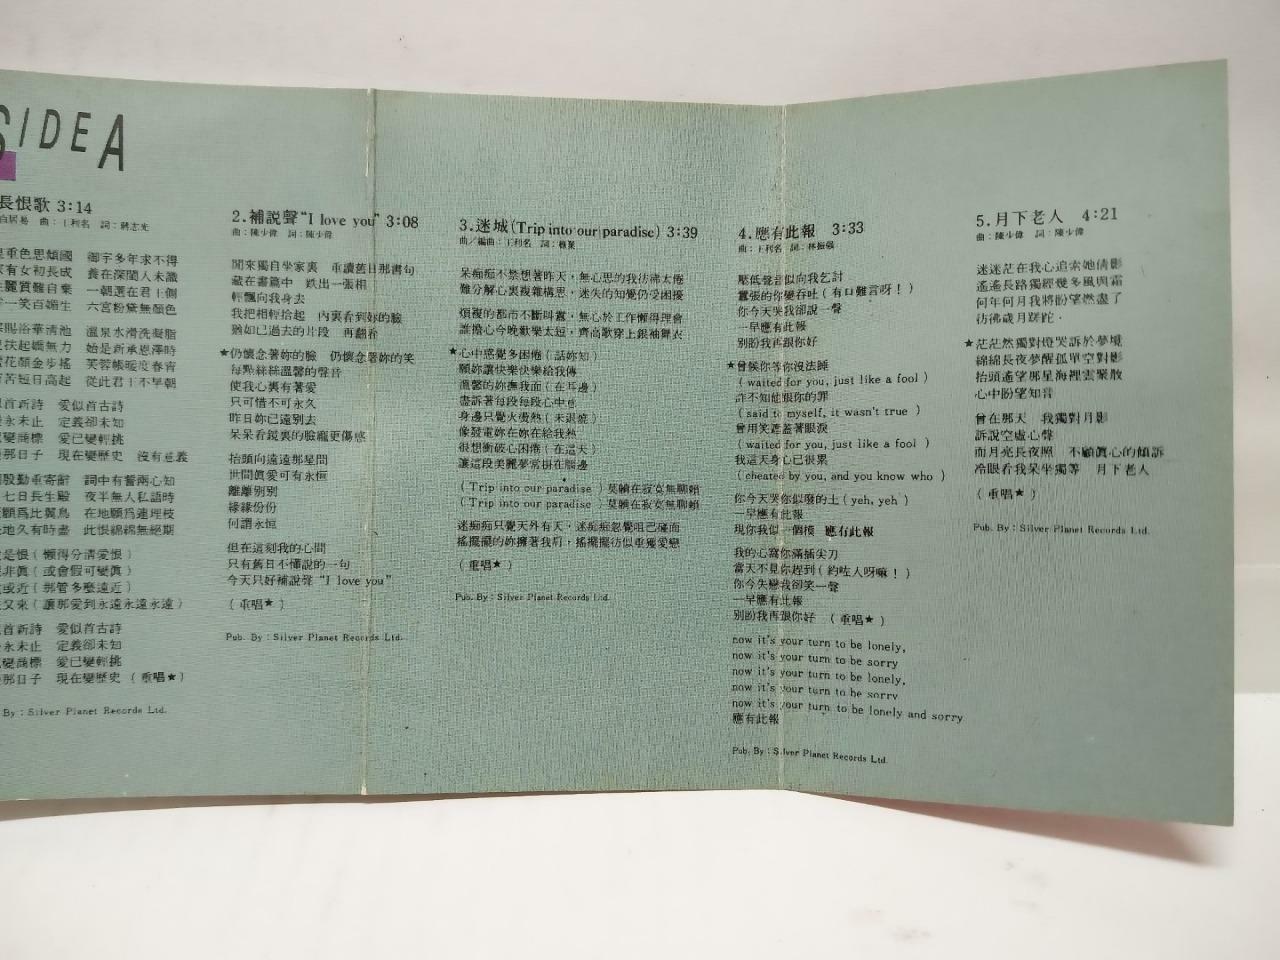 SIDEA
長恨歌 3:14
白居易 曲：王利名 詞：蔣志光
重色思傾國 御宇多年求不得
家有女初長成 養在深閨人未識
麗質難自棄 一朝選在君王側
一笑百媚生 六宮粉黛無顏色
賜浴華清池 溫泉水滑洗凝脂
扶起嬌無力 始是新承恩澤時
花顏金步搖 芙蓉帳暖度春宵
苦短日高起 從此君王不早朝
首新詩 愛似首古詩
永未止 定義卻未知
變商標 愛已變輕挑
那日子 現在變歷史 沒有意義
殷勤重寄辭 詞中有誓兩心知
七日長生殿 夜半無人私語時
願為比翼鳥 在地願為連理枝
地久有時盡 此恨綿綿無絕期
是恨（懶得分清愛恨）
非真（或會假可變真）
或近（那管多麼遠近）
又來（讓那愛到永遠永遠永遠）
首新詩 愛似首古詩
永未止 定義卻未知
變商標 愛已變輕挑
那日子 現在變歷史（重唱★）
By：Silver Planet Records Ltd.
2.補說聲“I love you” 3:08
曲：陳少偉 詞：陳少偉
閒來獨自坐家裏 重讀舊日那書句
藏在書篇中 跌出一張相
輕飄向我身去
我把相輕拾起 內裏看到妳的臉
猶如已過去的片段 再翻看
★仍懷念著妳的臉 仍懷念著妳的笑
每點絲絲溫馨的聲音
使我心裏有著愛
只可惜不可永久
昨日妳已遠別去
呆呆看鏡裏的臉龐更傷感
抬頭向遠遠那星問
世間真愛可有永恒
離離別別
緣緣份份
何謂永恒
但在這刻我的心間
只有舊日不懂說的一句
今天只好補說聲“I love you”
（重唱★）
Pub. By：Silver Planet Records Ltd.
3.迷城(Trip into our paradise) 3:39
曲／編曲：王利名 詞：
呆痴痴不禁想著昨天，無心思的我彷彿太倦
難分解心裏複雜構思，迷失的知覺仍受困擾
煩複的都市不斷叫囂，無心於工作懶得理會
誰擔心今晚歡樂太短，齊高歌穿上銀袖舞衣
★心中感覺多困倦（話妳知）
願妳讓快樂快樂給我傳
溫馨的妳撫我面（在耳邊）
盡訴著每段每段心中意
身邊只覺火燙熱（未退燒）
像發電妳在妳在給我熱
很想衝破心困倦（在這天）
讓這段美麗夢常掛在腦邊
（Trip into our paradise）莫賴在寂寞無聊賴
（Trip into our paradise）莫賴在寂寞無聊賴
迷痴痴只覺天外有天，迷痴痴忽覺咀已碰面
搖擺擺的妳擁著我肩，搖擺擺彷似重獲愛戀
（重唱★）
Pub. By：Silver Planet Records Ltd.
4.應有此報 3:33
曲：王利名 詞：林振強
壓低聲音似向我乞討
囂張的你變吞吐（有口難言呀！）
你今天哭我卻說一聲
一早應有此報
別盼我再跟你好
★曾候你等你沒法睡
（waited for you, just like a fool）
詐不知他跟你的罪
（said to myself, it wasn't true）
曾用笑遮蓋著眼淚
（waited for you, just like a fool）
我這天身心已很累
(cheated by you, and you know who）
你今天哭你似廢的土（yeh, yeh）
一早應有此報
現你我似一個模 應有此報
我的心窩你滿插尖刀
當天不見你趕到（約咗人呀嘛！）
你今失戀我卻笑一聲
一早應有此報
別盼我再跟你好 （重唱★）
now it's your turn to be lonely,
now it's your turn to be sorry
now it's your turn to be lonely,
now it's your turn to be sorry
now it's your turn to be lonely and sorry
應有此報
Pub. By：Silver Planet Records Ltd.
5.月下老人 4:21
曲：陳少偉 詞：陳少偉
迷迷茫在我心追索她倩影
遙遙長路獨經幾多風與霜
何年何月我將盼望燃盡了
彷彿歲月蹉跎．
★茫茫然獨對燈哭訴於夢境
綿綿長夜夢醒孤單空對影
抬頭遙望那星海裡雲聚散
心中盼望知音
曾在那天 我獨對月影
訴說空虛心聲
而月亮長夜照 不顧真心的傾訴
冷眼看我呆坐獨等 月下老人
（重唱★）
Pub. By：Silver Planet Records Ltd.